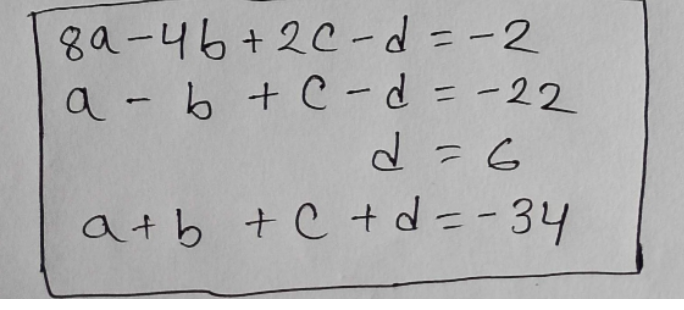 8a-4b+2c-d=-2
a - b + c-d = -22
d = 6
a+b +c+d=-34